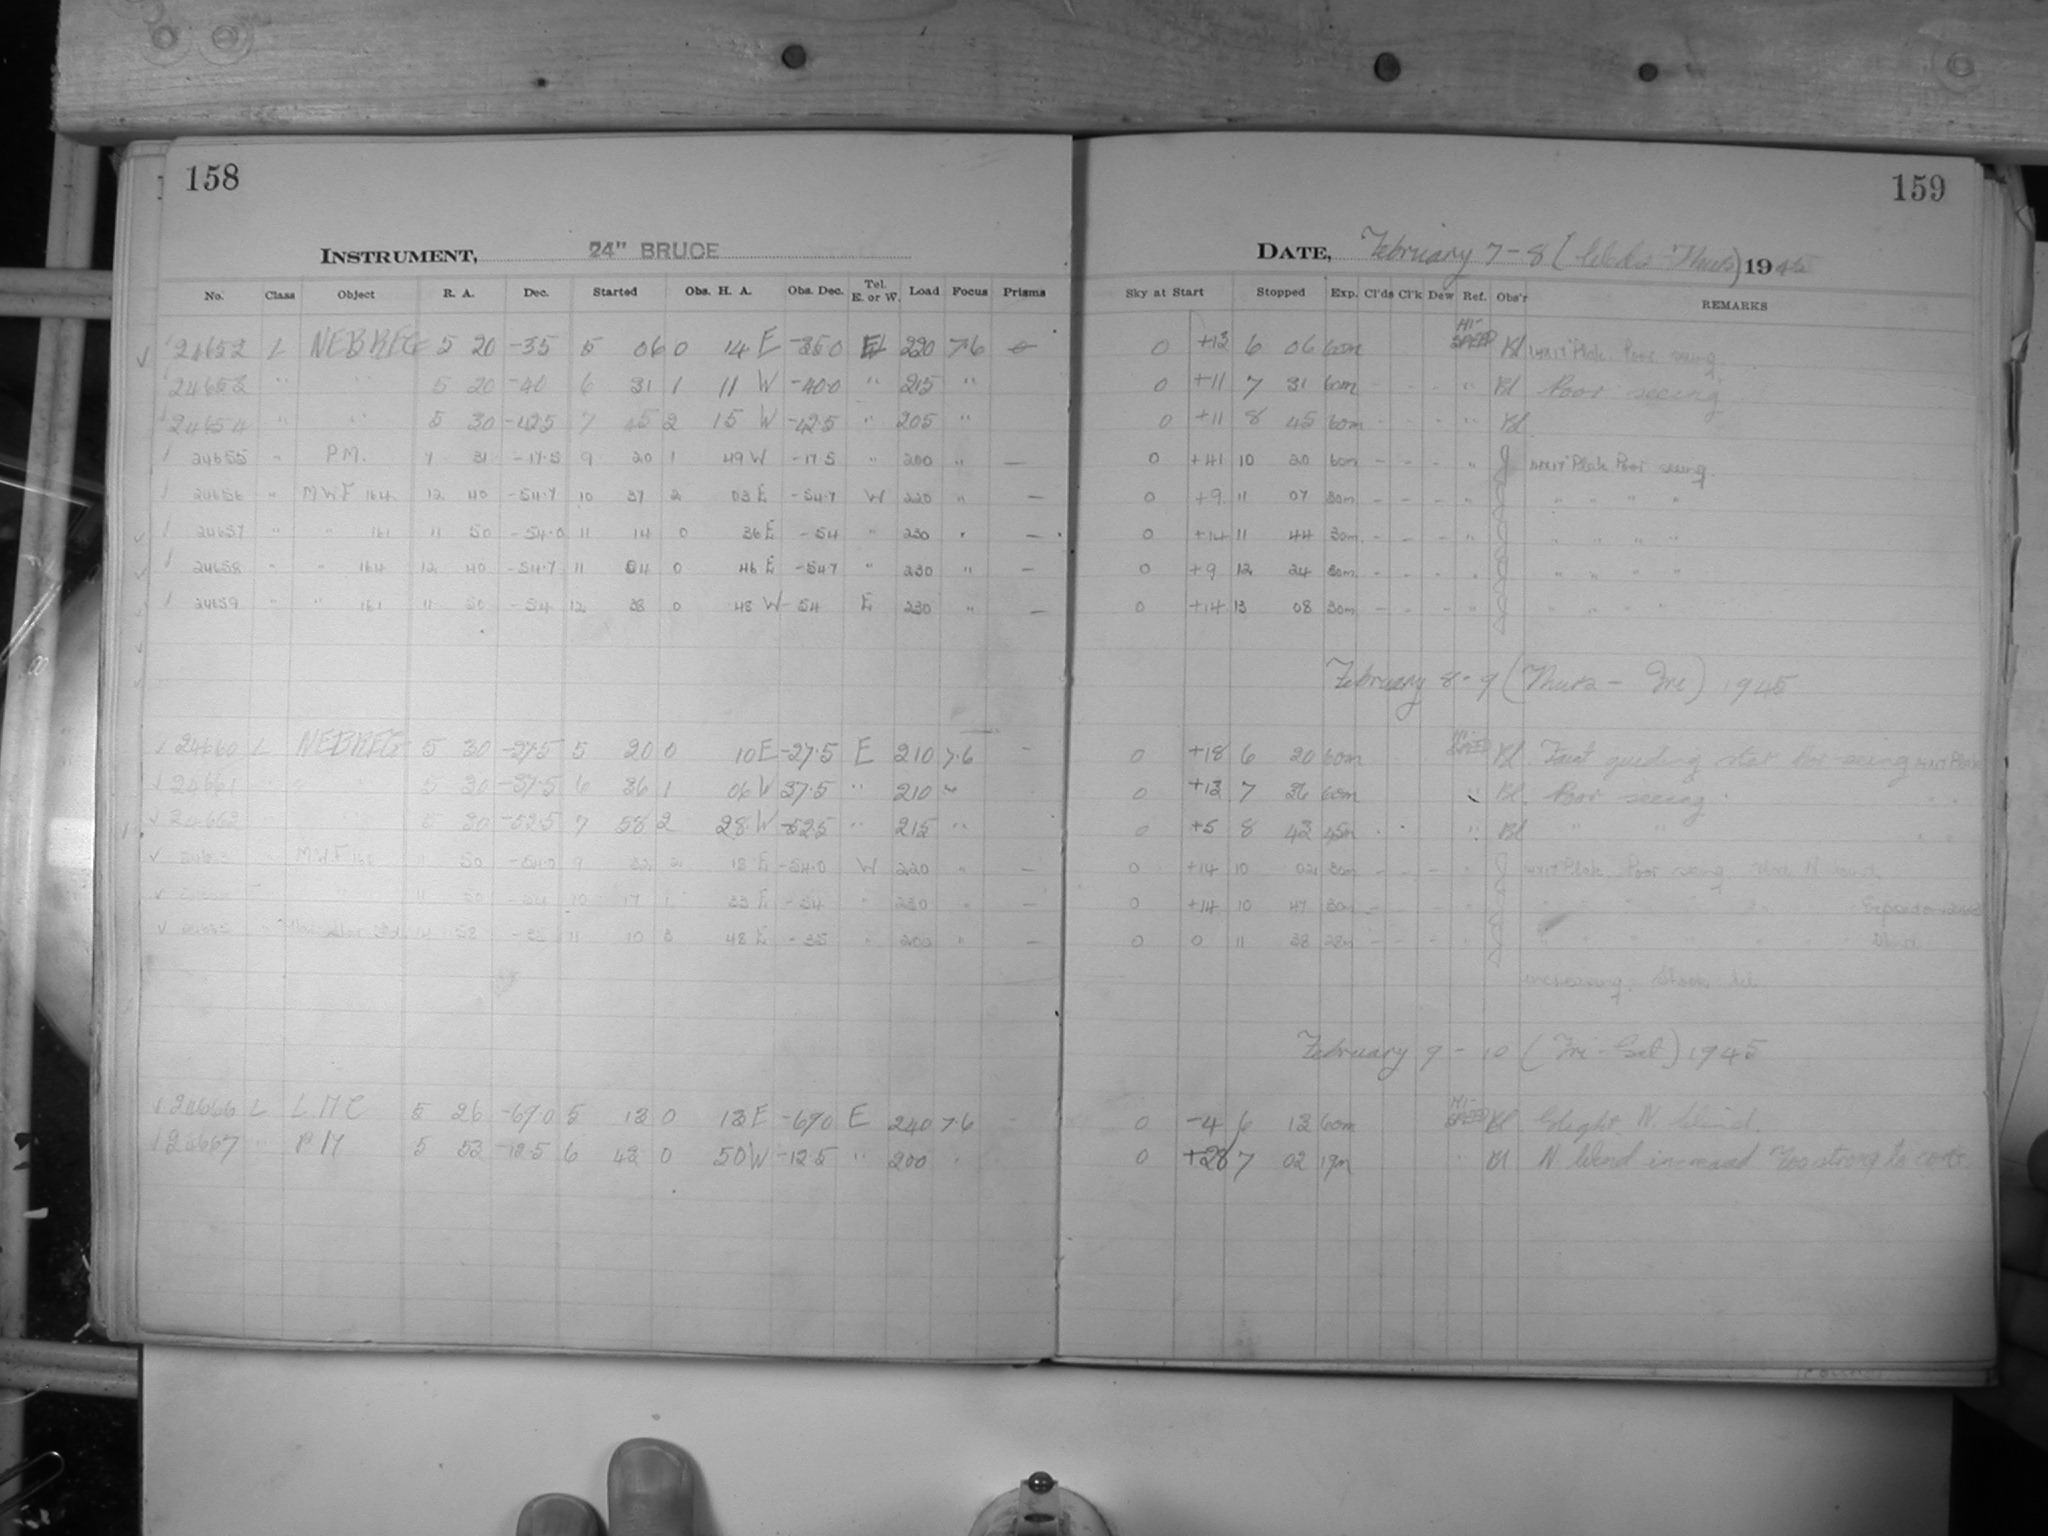 158
INSTRUMENT, 24" BRUCE
No. Class Object R. A. Dec. Started Obs. H. A. Obs. Dec. Tel. E. or W. Load Focus Prisms
24652 L NEBREG 5 20 -35 5 06 0 14 E -35.0 220 7.6
24653 " " 5 20 -40 6 31 1 11 W -40.0 " 215 "
24654 " " 5 30 -42.5 7 45 2 15 W -42.5 " 205 "
24655 " P.M. 7 31 -17.5 9 20 1 49 W -17.5 " 200 " —
24656 " MWF 164 12 40 -54.7 10 37 2 03 E -54.7 W 220 " —
24657 " " 161 11 50 -54.0 11 14 0 36 E -54 " 230 " —
24658 " " 164 12 40 -54.7 11 54 0 46 E -54.7 " 230 " —
24659 " " 161 11 50 -54 12 38 0 48 W -54 E 230 " —
24660 L NEBREG 5 30 -27.5 5 20 0 10 E -27.5 E 210 7.6 -
24661 " " 5 30 -37.5 6 36 1 06 W 37.5 " 210 "
24662 5 30 -52.5 7 58 2 28 W -52.5 " 215 "
MWF 50 -54.0 9 32 2 18 E -54.0 W 220 " —
11 50 -54 10 17 1 33 E -54 " 230 " —
-35 11 10 3 48 E -35 " 200 " —
24666 L LMC 5 26 -67.0 5 13 0 13 E -67.0 E 240 7.6 -
24667 " PM 5 52 -12.5 6 43 0 50 W -12.5 " 200
159
DATE, February 7-8 (Weds-Thurs) 1945
Sky at Start Stopped Exp. Cl'ds Cl'k Dew Ref. Obs'r REMARKS
0 +13 6 06 60m HI-SPEED Bl 14x17 Plate. Poor seeing.
0 +11 7 31 60m - - - " Bl Poor seeing
0 +11 8 45 60m - - - " Bl
0 +41 10 20 60m - - - " J 14x17 Plate Poor seeing.
0 +9 11 07 30m - - - " J " " " "
0 +14 11 44 30m - - - " J " " " "
0 +9 12 24 30m - - - " J " " " "
0 +14 13 08 30m - - - " J " " " "
February 8-9 (Thurs - Fri) 1945
0 +18 6 20 60m HI-SPEED Bl. Faint guiding star Poor seeing 14x17 Plate
0 +13 7 36 60m " Bl. Poor seeing
0 +5 8 43 45m " Bl " "
0 +14 10 02 30m - - - " J 14x17 Plate. Poor seeing. N. wind.
0 +14 10 47 30m - - - " J " " "
0 0 11 38 28m - - - " J " " " Wind
increasing.
February 9-10 (Fri-Sat) 1945
0 -4 6 13 60m HI-SPEED Bl Slight N. Wind.
0 +28 7 02 19m " Bl N. Wind increased Too strong to cont.